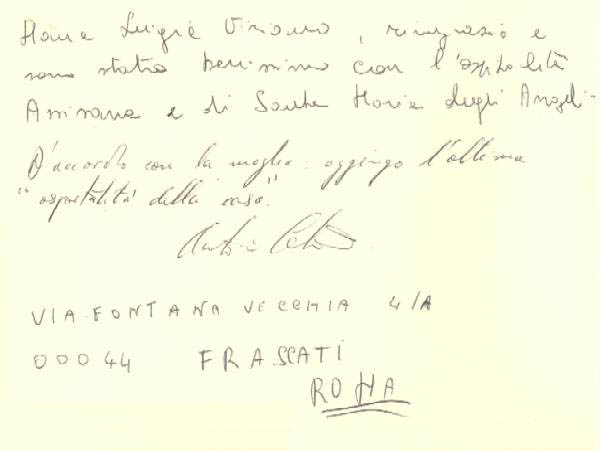 Maria Luigia Viviano, ringrazio e
sono stata benissimo con l'ospitalità
Assisana e di Santa Maria degli Angeli.
D'accordo con la moglie: aggiungo l'ottima
"ospitalità della casa".
VIA FONTANA VECCHIA 4/A
00044 FRASCATI
ROMA